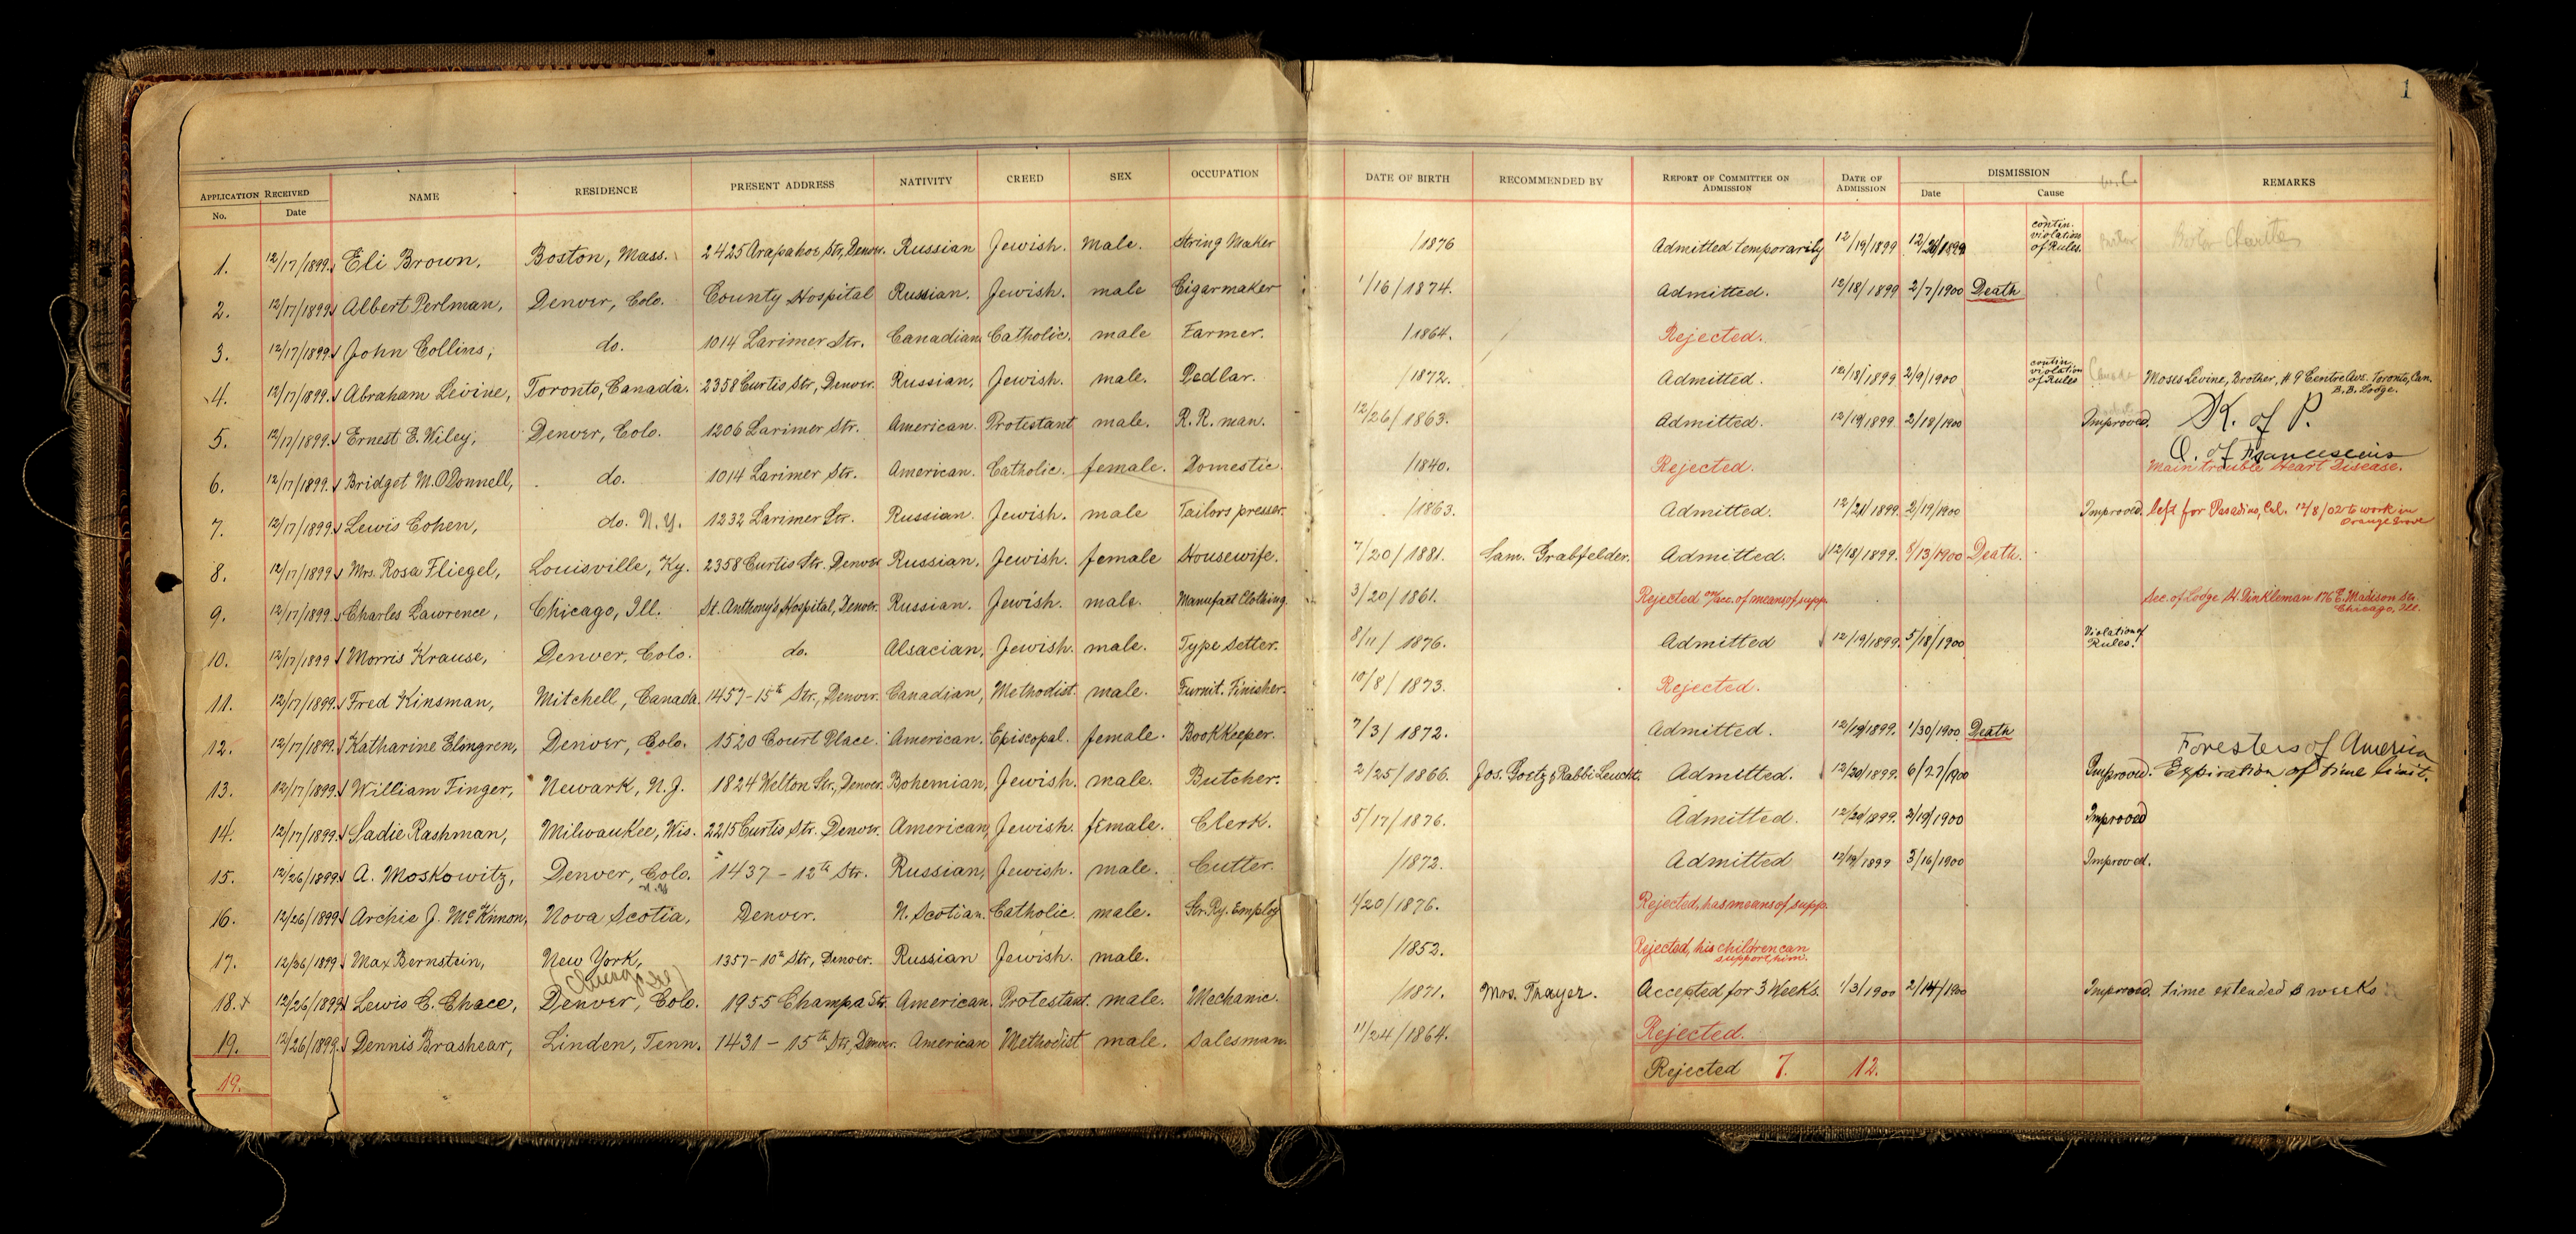 1
APPLICATION RECEIVED NAME RESIDENCE PRESENT ADDRESS NATIVITY CREED SEX OCCUPATION DATE OF BIRTH RECOMMENDED BY REPORT OF COMMITTEE ON ADMISSION DATE OF ADMISSION DISMISSION REMARKS
No. Date Date Cause
1. 12/17/1899. Eli Brown, Boston, Mass. 2425 Arapahoe Str, Denver. Russian Jewish. male. String Maker /1876 Admitted temporarily 12/19/1899 12/26/1899 contin. violation of Rules.
2. 12/17/1899. Albert Perlman, Denver, Colo. County Hospital Russian. Jewish. male Cigarmaker 1/16/1874. Admitted. 12/18/1899 2/7/1900 Death
3. 12/17/1899. John Collins, do. 1014 Larimer Str. Canadian Catholic. male Farmer. /1864. Rejected.
4. 12/17/1899. Abraham Levine, Toronto, Canada. 2358 Curtis Str, Denver. Russian. Jewish. male. Pedlar. /1872. Admitted. 12/18/1899 2/9/1900 contin. violation of Rules Canada Moses Levine, Brother, # 9 Centre Ave. Toronto, Can.
B.B. Lodge.
5. 12/17/1899. Ernest E. Wiley, Denver, Colo. 1206 Larimer Str. American. Protestant male. R.R. man. 12/26/1863. Admitted. 12/19/1899 2/18/1900 Improved. K. of P.
O. of Franciscans
6. 12/17/1899. Bridget M. O'Donnell, do. 1014 Larimer Str. American. Catholic. female. Domestic. /1840. Rejected. Main trouble Heart Disease.
7. 12/17/1899. Lewis Cohen, do. N.Y. 1232 Larimer Str. Russian. Jewish. male Tailors presser. /1863. Admitted. 12/21/1899. 2/19/1900 Improved. left for Pasadina, Cal. 12/8/02 to work in
Orange Grove
8. 12/17/1899. Mrs. Rosa Fliegel, Louisville, Ky. 2358 Curtis Str. Denver Russian. Jewish. female Housewife. 7/20/1881. Sam. Grabfelder. Admitted. 12/18/1899. 8/13/1900 Death.
9. 12/17/1899. Charles Lawrence, Chicago, Ill. St. Anthony's Hospital, Denver. Russian. Jewish. male. Manufact Clothing. 3/20/1861. Rejected on acc. of means of supp. Sec. of Lodge H. Dinkleman 176 E. Madison Str.
Chicago, Ill.
10. 12/17/1899 Morris Krause, Denver, Colo. do. Alsacian, Jewish. male. Type Setter. 8/11/1876. Admitted 12/19/1899. 5/18/1900 Violation of Rules.
11. 12/17/1899. Fred Kinsman, Mitchell, Canada. 1457-15th Str., Denver. Canadian, Methodist. male. Furnit. Finisher. 10/8/1873. Rejected.
12. 12/17/1899. Katharine Elmgren, Denver, Colo. 1520 Court Place. American. Episcopal. female. Bookkeeper. 7/3/1872. Admitted. 12/19/1899. 1/30/1900 Death
Foresters of America
13. 12/17/1899. William Finger, Newark, N.J. 1824 Welton Str., Denver. Bohemian, Jewish. male. Butcher. 2/25/1866. Jos. Goetz & Rabbi Leucht. Admitted. 12/20/1899. 6/27/1900 Improved. Expiration of time limit.
14. 12/17/1899. Sadie Rashman, Milwaukee, Wis. 2215 Curtis Str. Denver. American, Jewish. female. Clerk. 5/17/1876. Admitted. 12/20/1899. 2/19/1900 Improved
15. 12/26/1899. A. Moskowitz, Denver, Colo. 1437 - 12th Str. Russian, Jewish. male. Cutter. /1872. Admitted 12/19/1899 3/16/1900 Improved.
N.Y.
16. 12/26/1899. Archie J. McKinnon, Nova Scotia, Denver. N. Scotian. Catholic. male. Str. Ry. Employ 1/20/1876. Rejected, has means of supp.
17. 12/26/1899. Max Bernstein, New York, 1357-10th Str, Denver. Russian Jewish. male. /1852. Rejected, his children can
support him.
(Chicago Ill)
18. x 12/26/1899. Lewis C. Chace, Denver, Colo. 1955 Champa Str. American. Protestant. male. Mechanic. /1871. Mos. Thayer. Accepted for 3 Weeks. 1/3/1900 2/14/1900 Improved. time extended 3 weeks
19. 12/26/1899. Dennis Brashear, Linden, Tenn. 1431 - 15th Str, Denver. American Methodist male. Salesman. 11/24/1864. Rejected.
19. Rejected 7. 12.